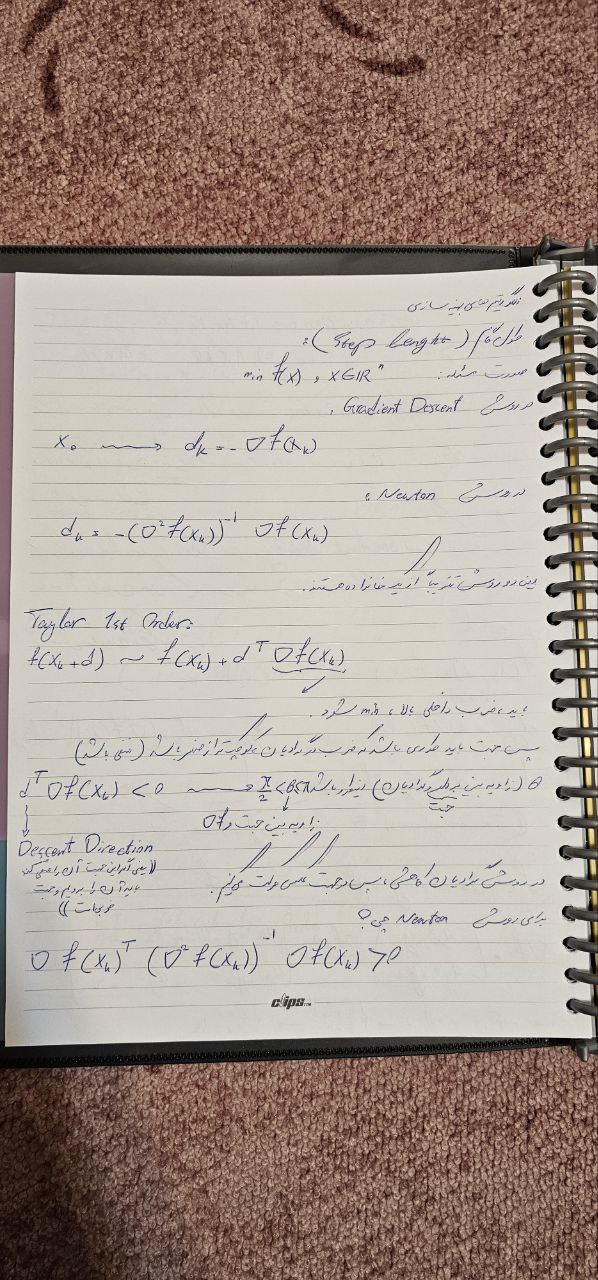 الگوریتم های بهینه سازی
طول گام (Step Lenght):
صورت مسئله: min f(x) , x∈IRⁿ
در روش Gradient Descent:
x₀ ⟶ dₖ = -∇f(xₖ)
در روش Newton:
dₖ = -(∇²f(xₖ))⁻¹ ∇f(xₖ)
این دو روش تقریباً از یک خانواده هستند.
Taylor 1st Order:
f(xₖ+d) ~ f(xₖ) + dᵀ ∇f(xₖ)
باید ضرب داخلی بالا، min شود.
پس جهت باید طوری باشد که ضرب در گرادیان کوچکتر از صفر باشد (منفی باشد)
dᵀ∇f(xₖ) < 0 ⟶ π/2 < θ ≤ π باشد (زاویه بین و گرادیان) θ
جهت
زاویه بین جهت و ∇f
Descent Direction
((یعنی اگر این جهت آن را منفی کند
باید آن را برویم و جهت
خوبیه است))
در روش گرادیان کاهشی، پس در جهت عکس حرکت می‌کنیم.
برای روش Newton چی؟
∇f(xₖ)ᵀ (∇²f(xₖ))⁻¹ ∇f(xₖ) > 0
clips